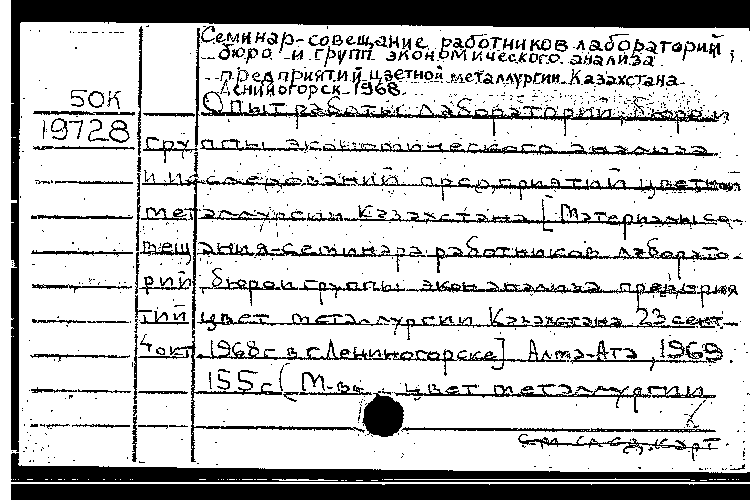 Семинар-совещание работников лабораторий,
бюро и групп экономического анализа
предприятий цветной металлургии Казахстана.
Лениногорск. 1968.
50К
Опыт работы лабораторий, бюро и
19728
группы экономического анализа
и исследований предприятий цветной
металлургии Казахстана [Материалы со-
вещания-семинара работников лаборато-
рий бюро и группы экон анализа предприя
тий цвет металлургии Казахстана 23 сент-
4 окт. 1968г в г. Лениногорске] Алма-Ата, 1969.
155с (М-во цвет металлургии
см след. карт